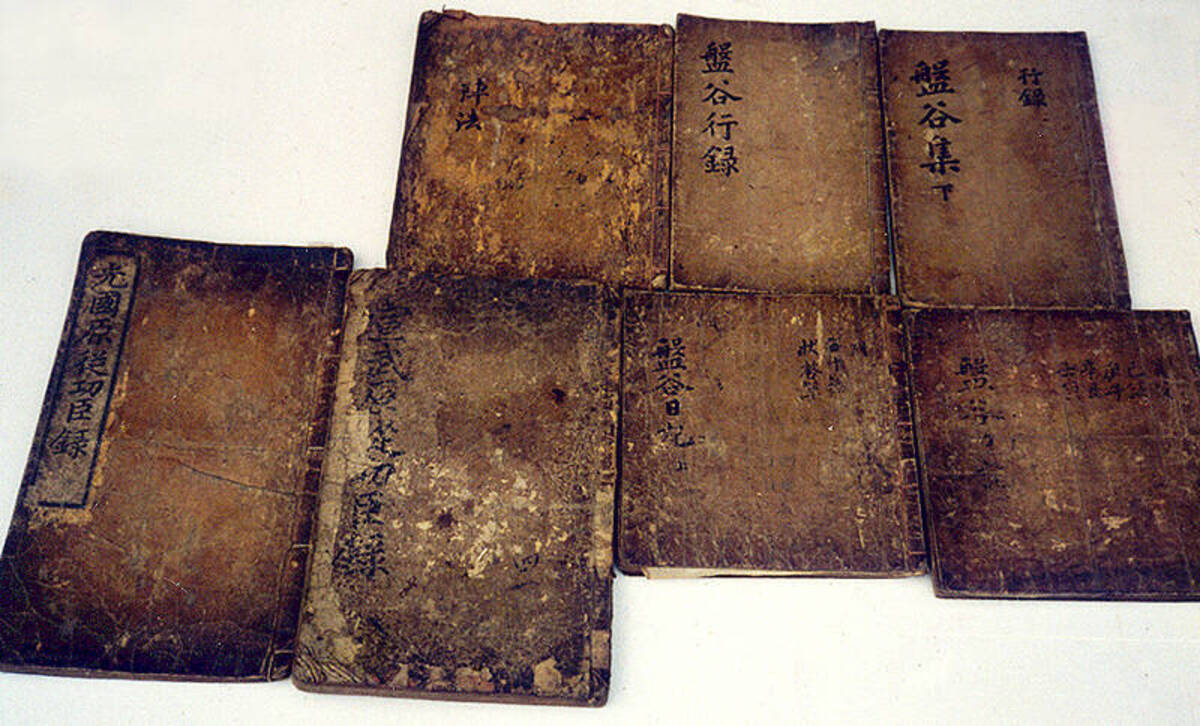 陣法
盤谷行錄
行錄
盤谷集 下
光國原從功臣錄
宣武原從功臣錄
四
盤谷日記 上
盤谷日